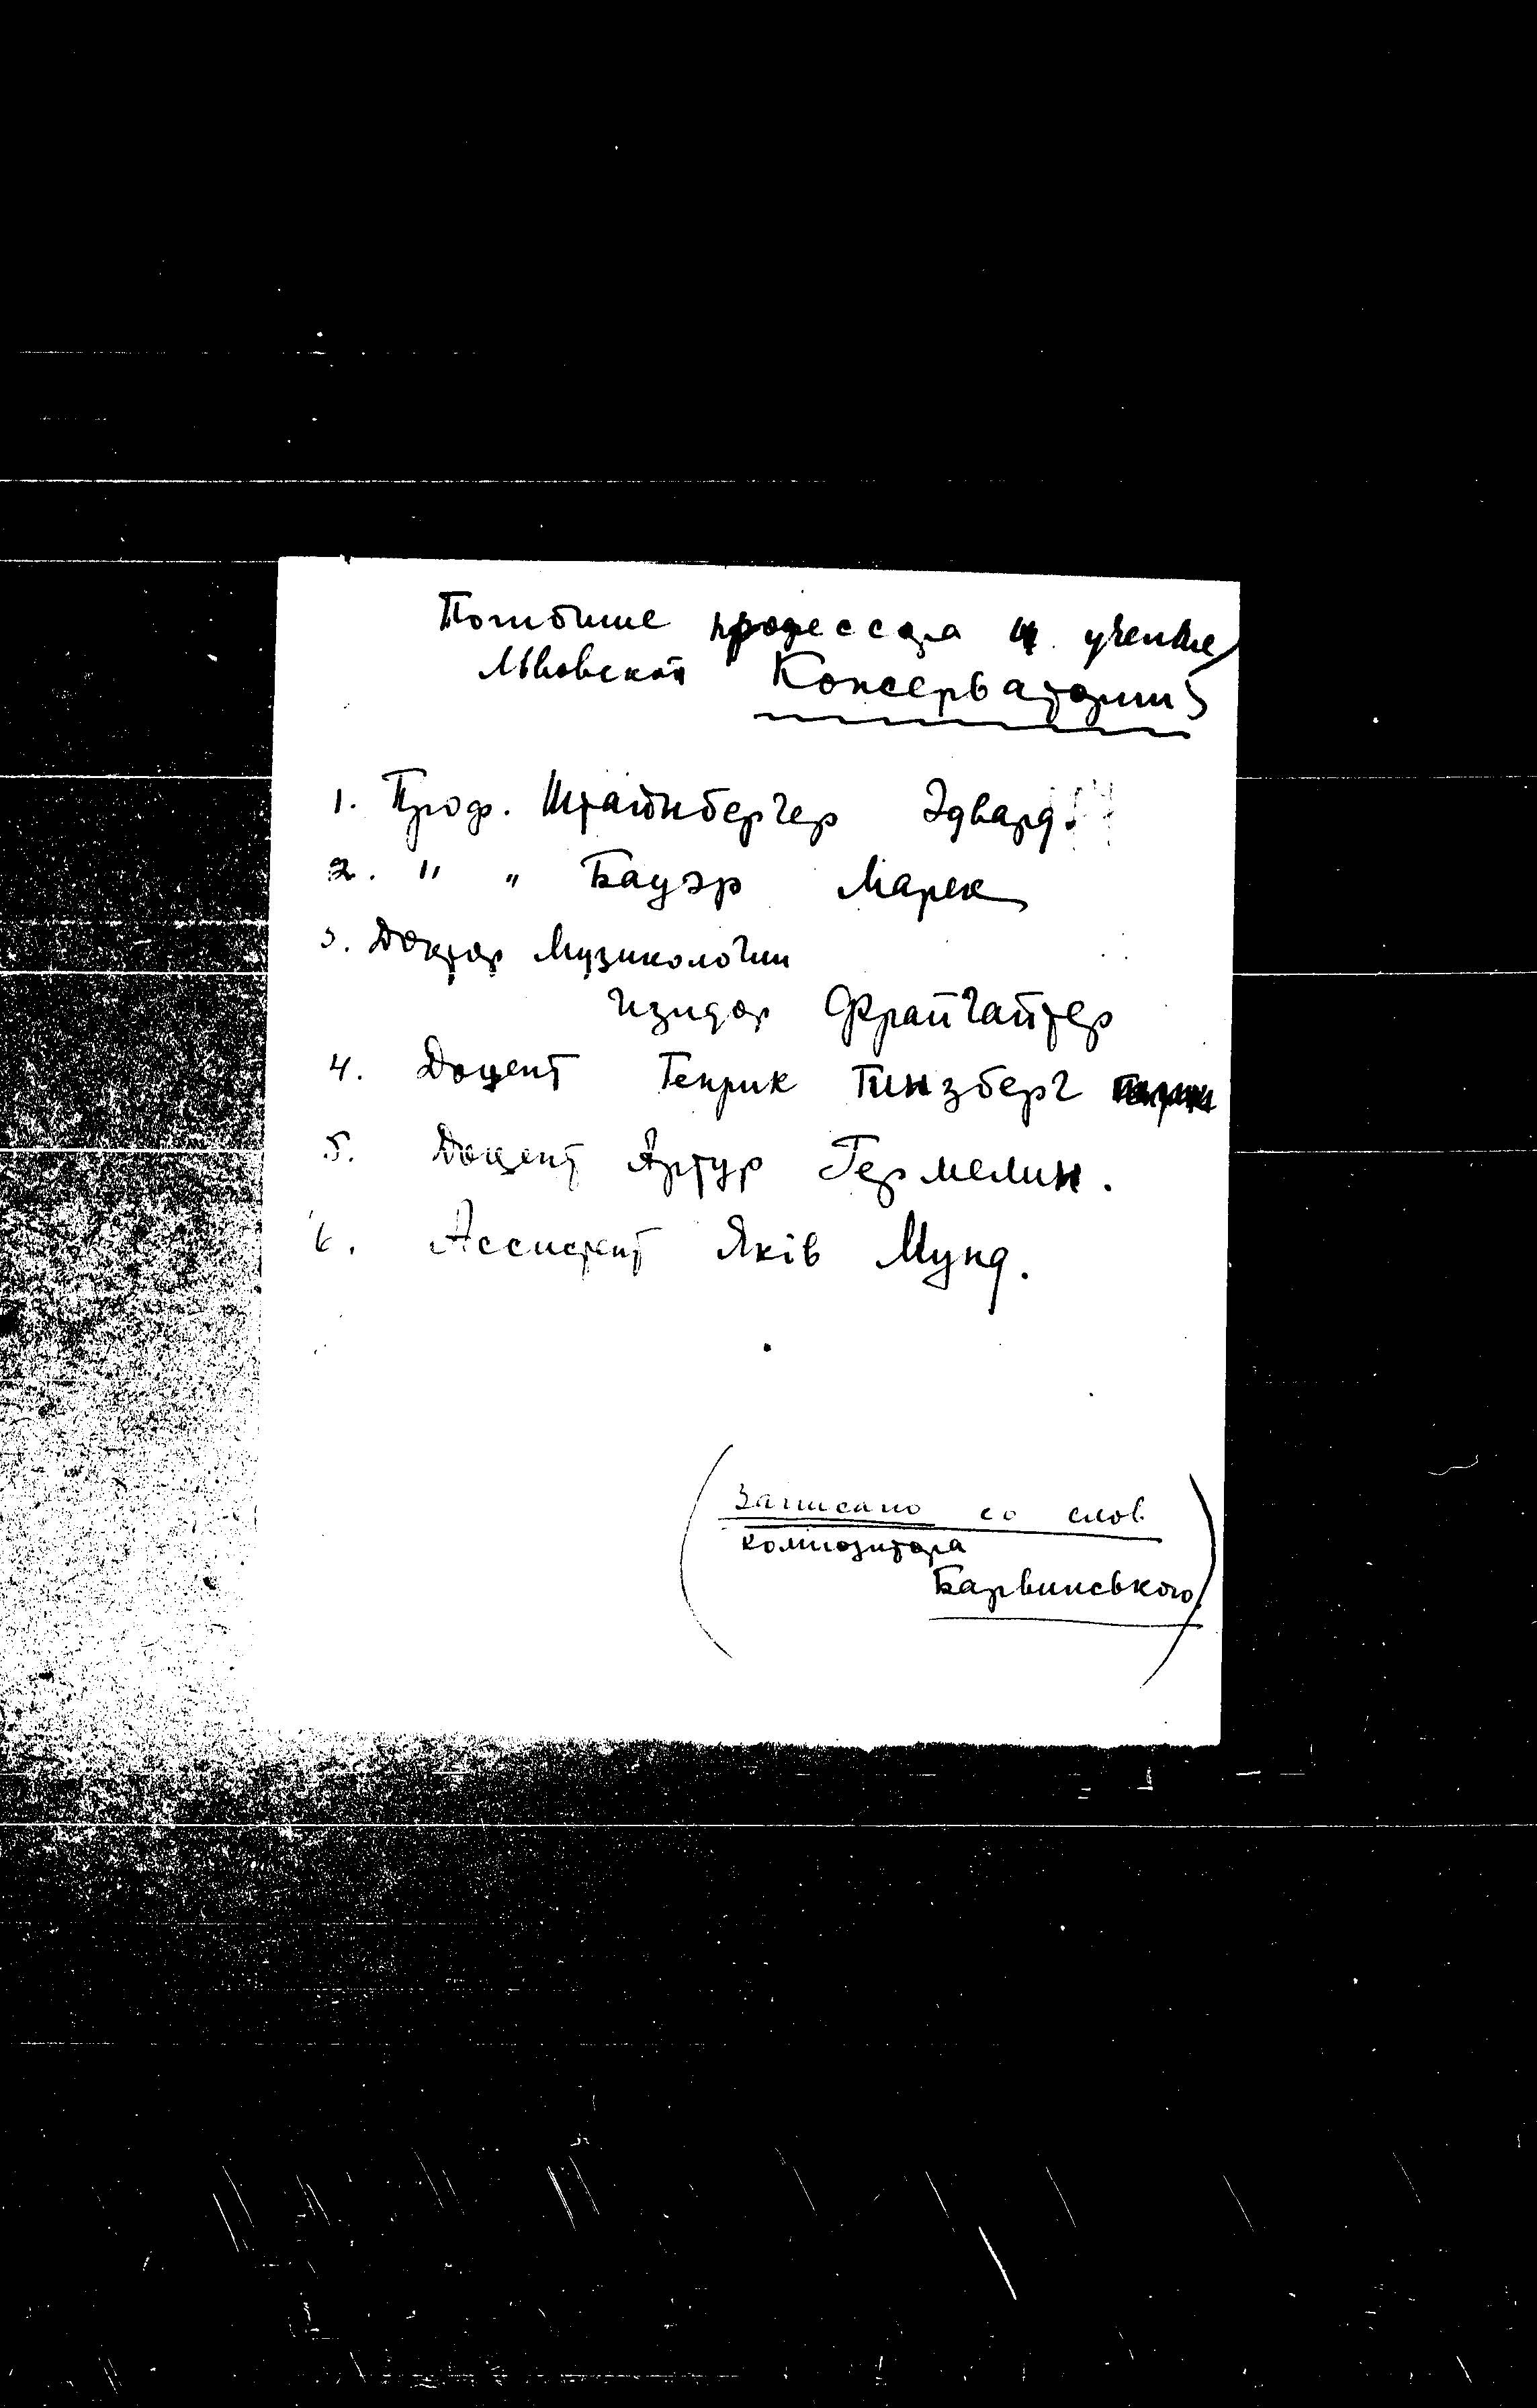 Погибшие профессора и ученые
Львовской Консерватории
1. Проф. Штайнбергер Эдвард.
2. " " Бауэр Марек
3. Доктор Музикологии
Изидор Фрайгайтер
4. Доцент Генрик Гинзберг
5. Доцент Артур Гермелин.
6. Ассистент Яків Мунд.
(Записано со слов
композитора
Барвинського)